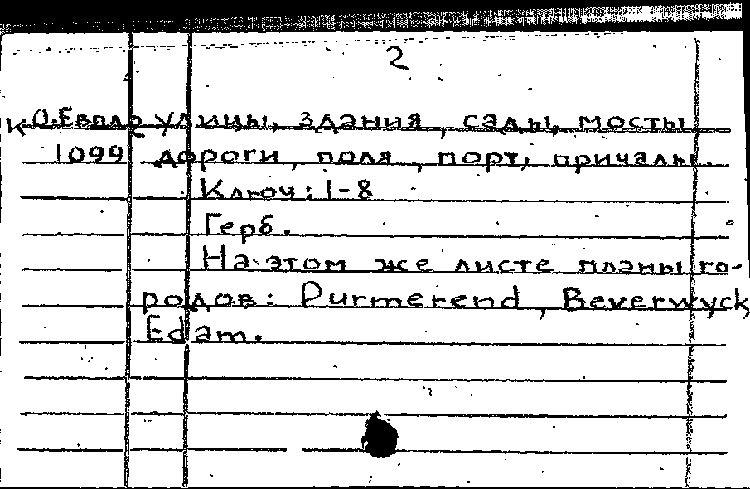 2
К.О.Евпло улицы, здания, сады, мосты
1099 дороги, поля, порт, причалы.
Ключ: 1-8
Герб.
На этом же листе планы го-
родов: Purmerend, Beverwyck,
Edam.